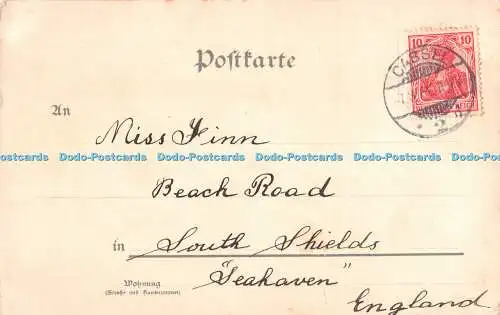 Postkarte
10 10
CASSEL
An
Miss Finn
Dodo-Postcards Dodo-Postcards Dodo-Postcards Dodo-Postcards
Beach Road
in South Shields
"Seahaven"
Wohnung
(Straße und Hausnummer)
England